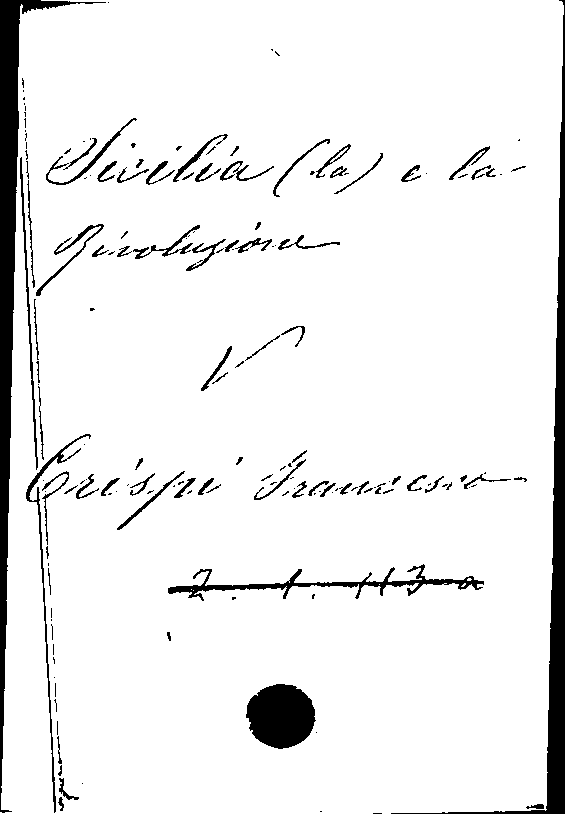 Sicilia (la) e la
Rivoluzione
V
Crispi Francesco
2. 1. 113 a